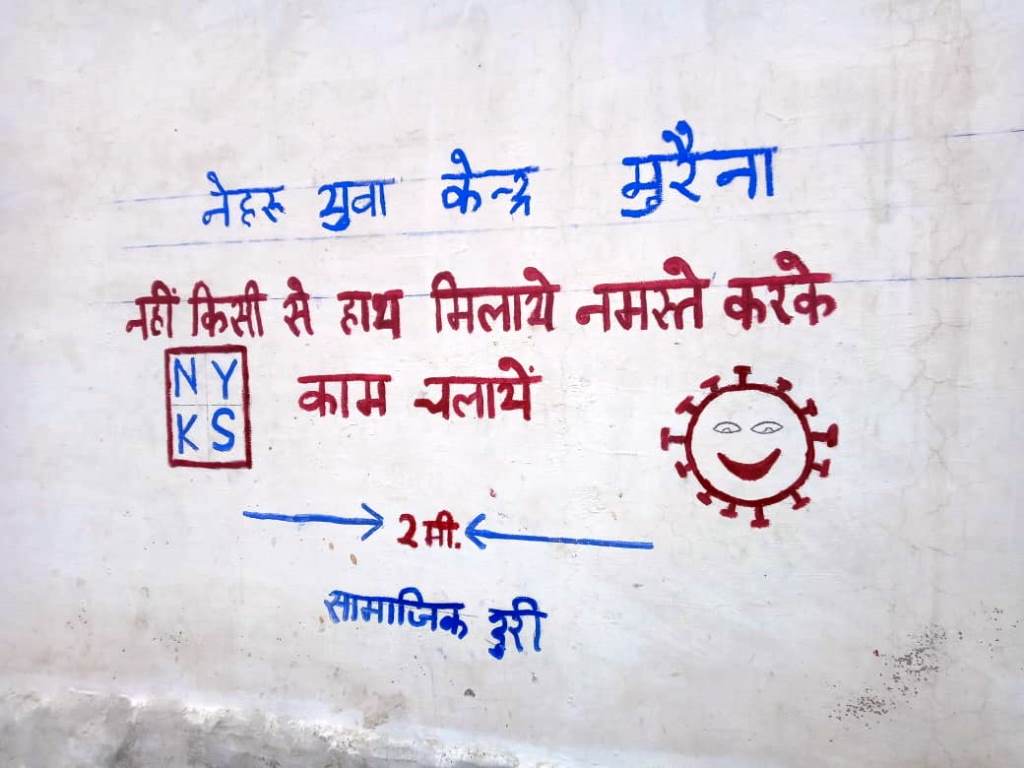 नेहरू युवा केन्द्र मुरैना
नहीं किसी से हाथ मिलाये नमस्ते करके
काम चलायें
NY
KS
2 मी.
सामाजिक दुरी